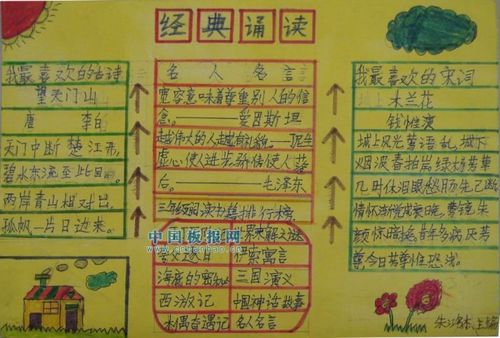 经典诵读
我最喜欢的古诗
望天门山
唐 李白
天门中断楚江开,
碧水东流至此回。
两岸青山相对出,
孤帆一片日边来。
名人名言
宽容意味着尊重别人的信
念。——爱因斯坦
越伟大的人越有礼貌。
虚心使人进步,骄傲使人落
后。——毛泽东
三年级阅读书籍排行榜
中国板报网
伊索寓言
海底的
三国演义
西游记
中国神话故事
木偶奇遇记
名人名言
我最喜欢的宋词
木兰花
钱惟演
城上风光莺语乱,城下
烟波春拍岸。绿杨芳草
几时休,泪眼愁肠先已断。
情怀渐觉成衰晚,鸾镜朱
颜惊暗换。昔年多病厌芳
尊,今日芳尊惟恐浅。
主编